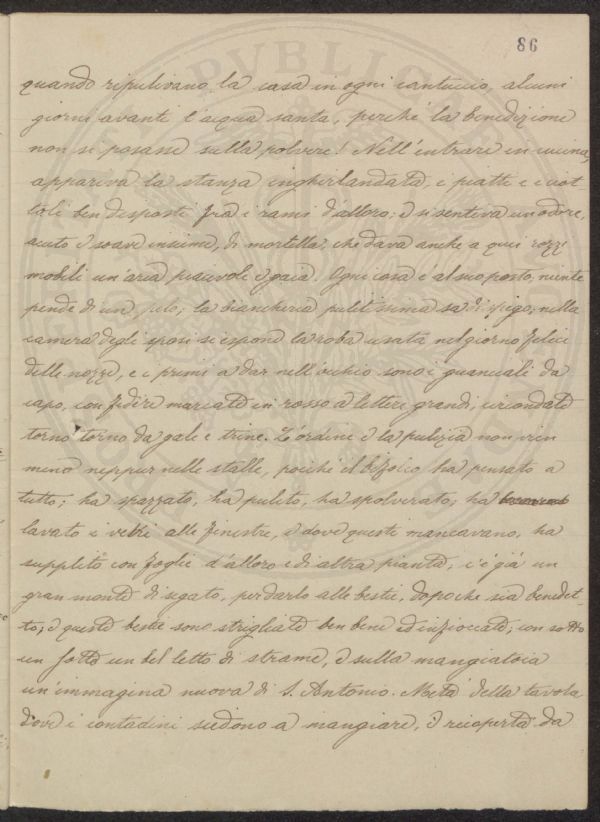 86
quando ripulivano la casa in ogni cantuccio, alcuni
giorni avanti l'acqua santa, perché la benedizione
non si posasse sulla polvere! Nell'entrare in cucina,
appariva la stanza inghirlandata, i piatti e i vot
toli ben disposti fra i rami d'alloro, e si sentiva un odore,
acuto e soave insieme, di mortella, che dava anche a quei rozzi
mobili un'aria piacevole e gaia. Ogni cosa è al suo posto, niente
pende di un pelo; la biancheria pulitissima sa di spigo; nella
camera degli sposi si espone la roba usata nel giorno felice
delle nozze, e i primi a dar nell'occhio sono i guanciali da
capo, con federe marcate in rosso a lettere grandi, circondate
torno torno da gale e trine. L'ordine e la pulizia non vien
meno neppur nelle stalle, poiché il bifolco ha pensato a
tutto; ha spazzato, ha pulito, ha spolverato, ha
lavato i vetri alle finestre, e dove questi mancavano, ha
supplito con foglie d'alloro e di altra piante, c'è già un
gran monte di segato, per darlo alle bestie, dopo che sia benedet-
to; e queste bestie sono strigliate ben bene ed infioccate; con sotto
un bel letto di strame, e sulla mangiatoia
un'immagina nuova di S. Antonio. Metà della tavola
dove i contadini siedono a mangiare, è ricoperta da